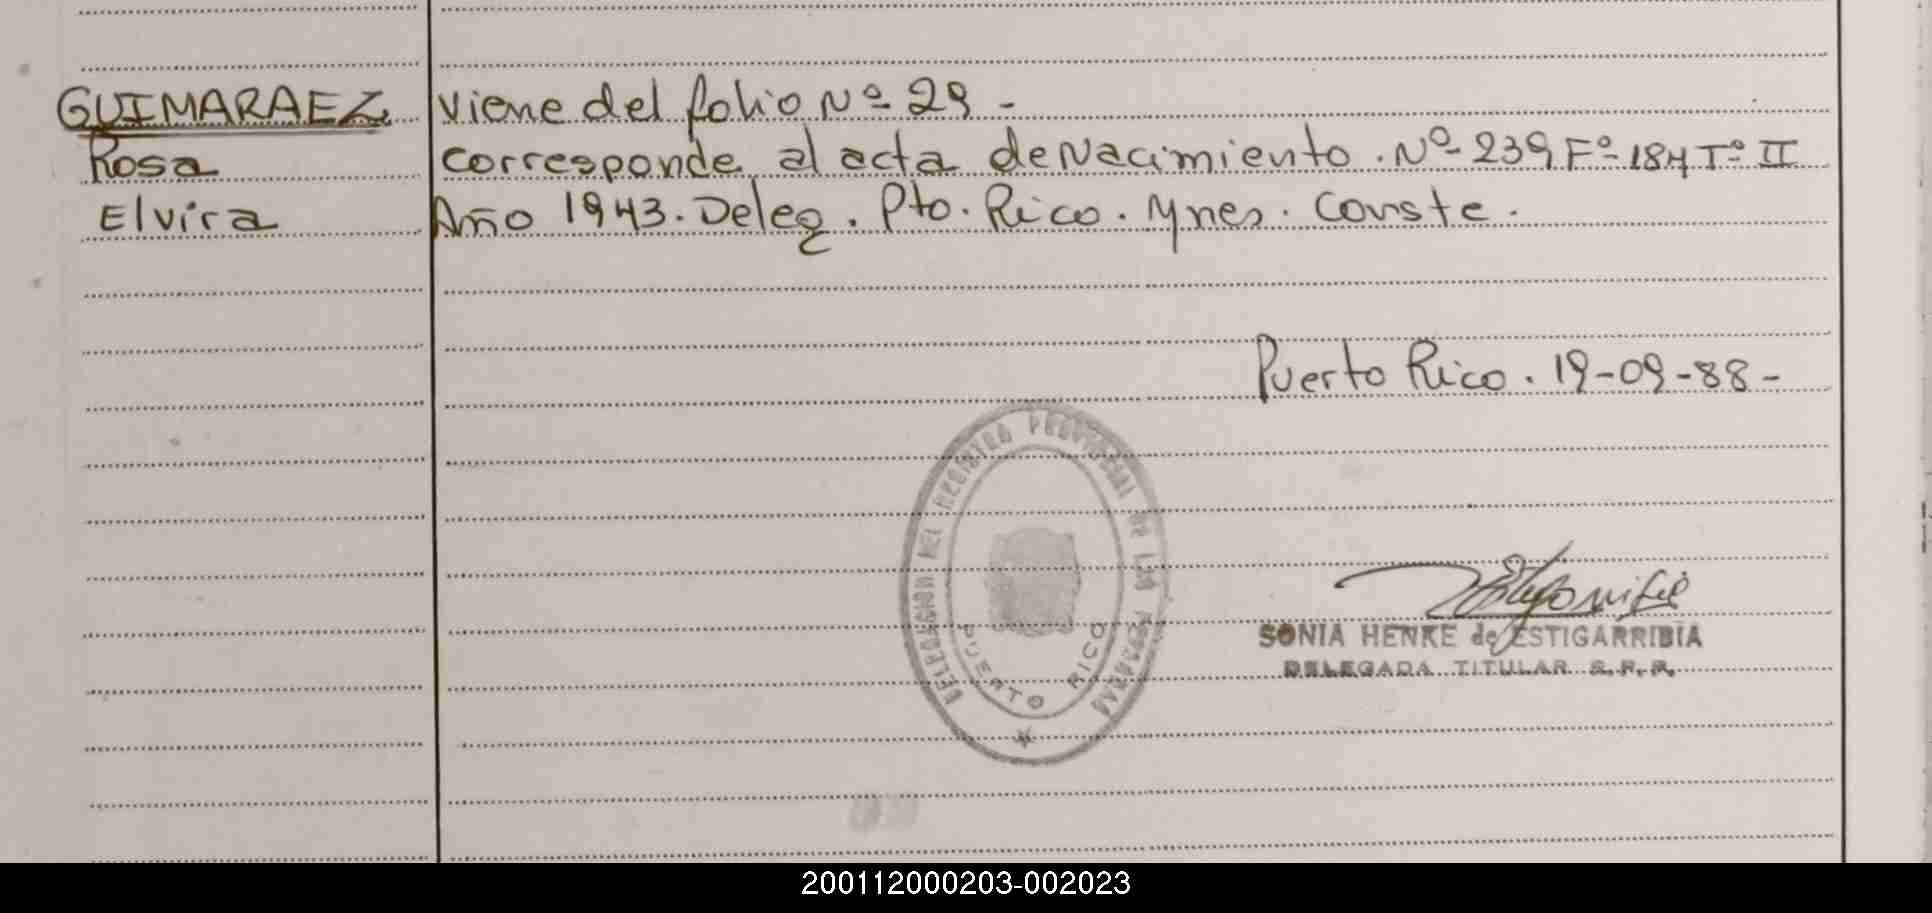 GUIMARAEZ viene del folio Nº 29 -
Rosa corresponde al acta de Nacimiento. Nº 239 Fº 184 Tº II
Elvira Año 1943. Deleg. Pto. Rico. Mnes. Conste.
Puerto Rico. 19-09-88-
DELEGACION DEL REGISTRO PROVINCIAL DE LAS PERSONAS
PUERTO RICO
SONIA HENKE de ESTIGARRIBIA
DELEGADA TITULAR R.P.P.
200112000203-002023